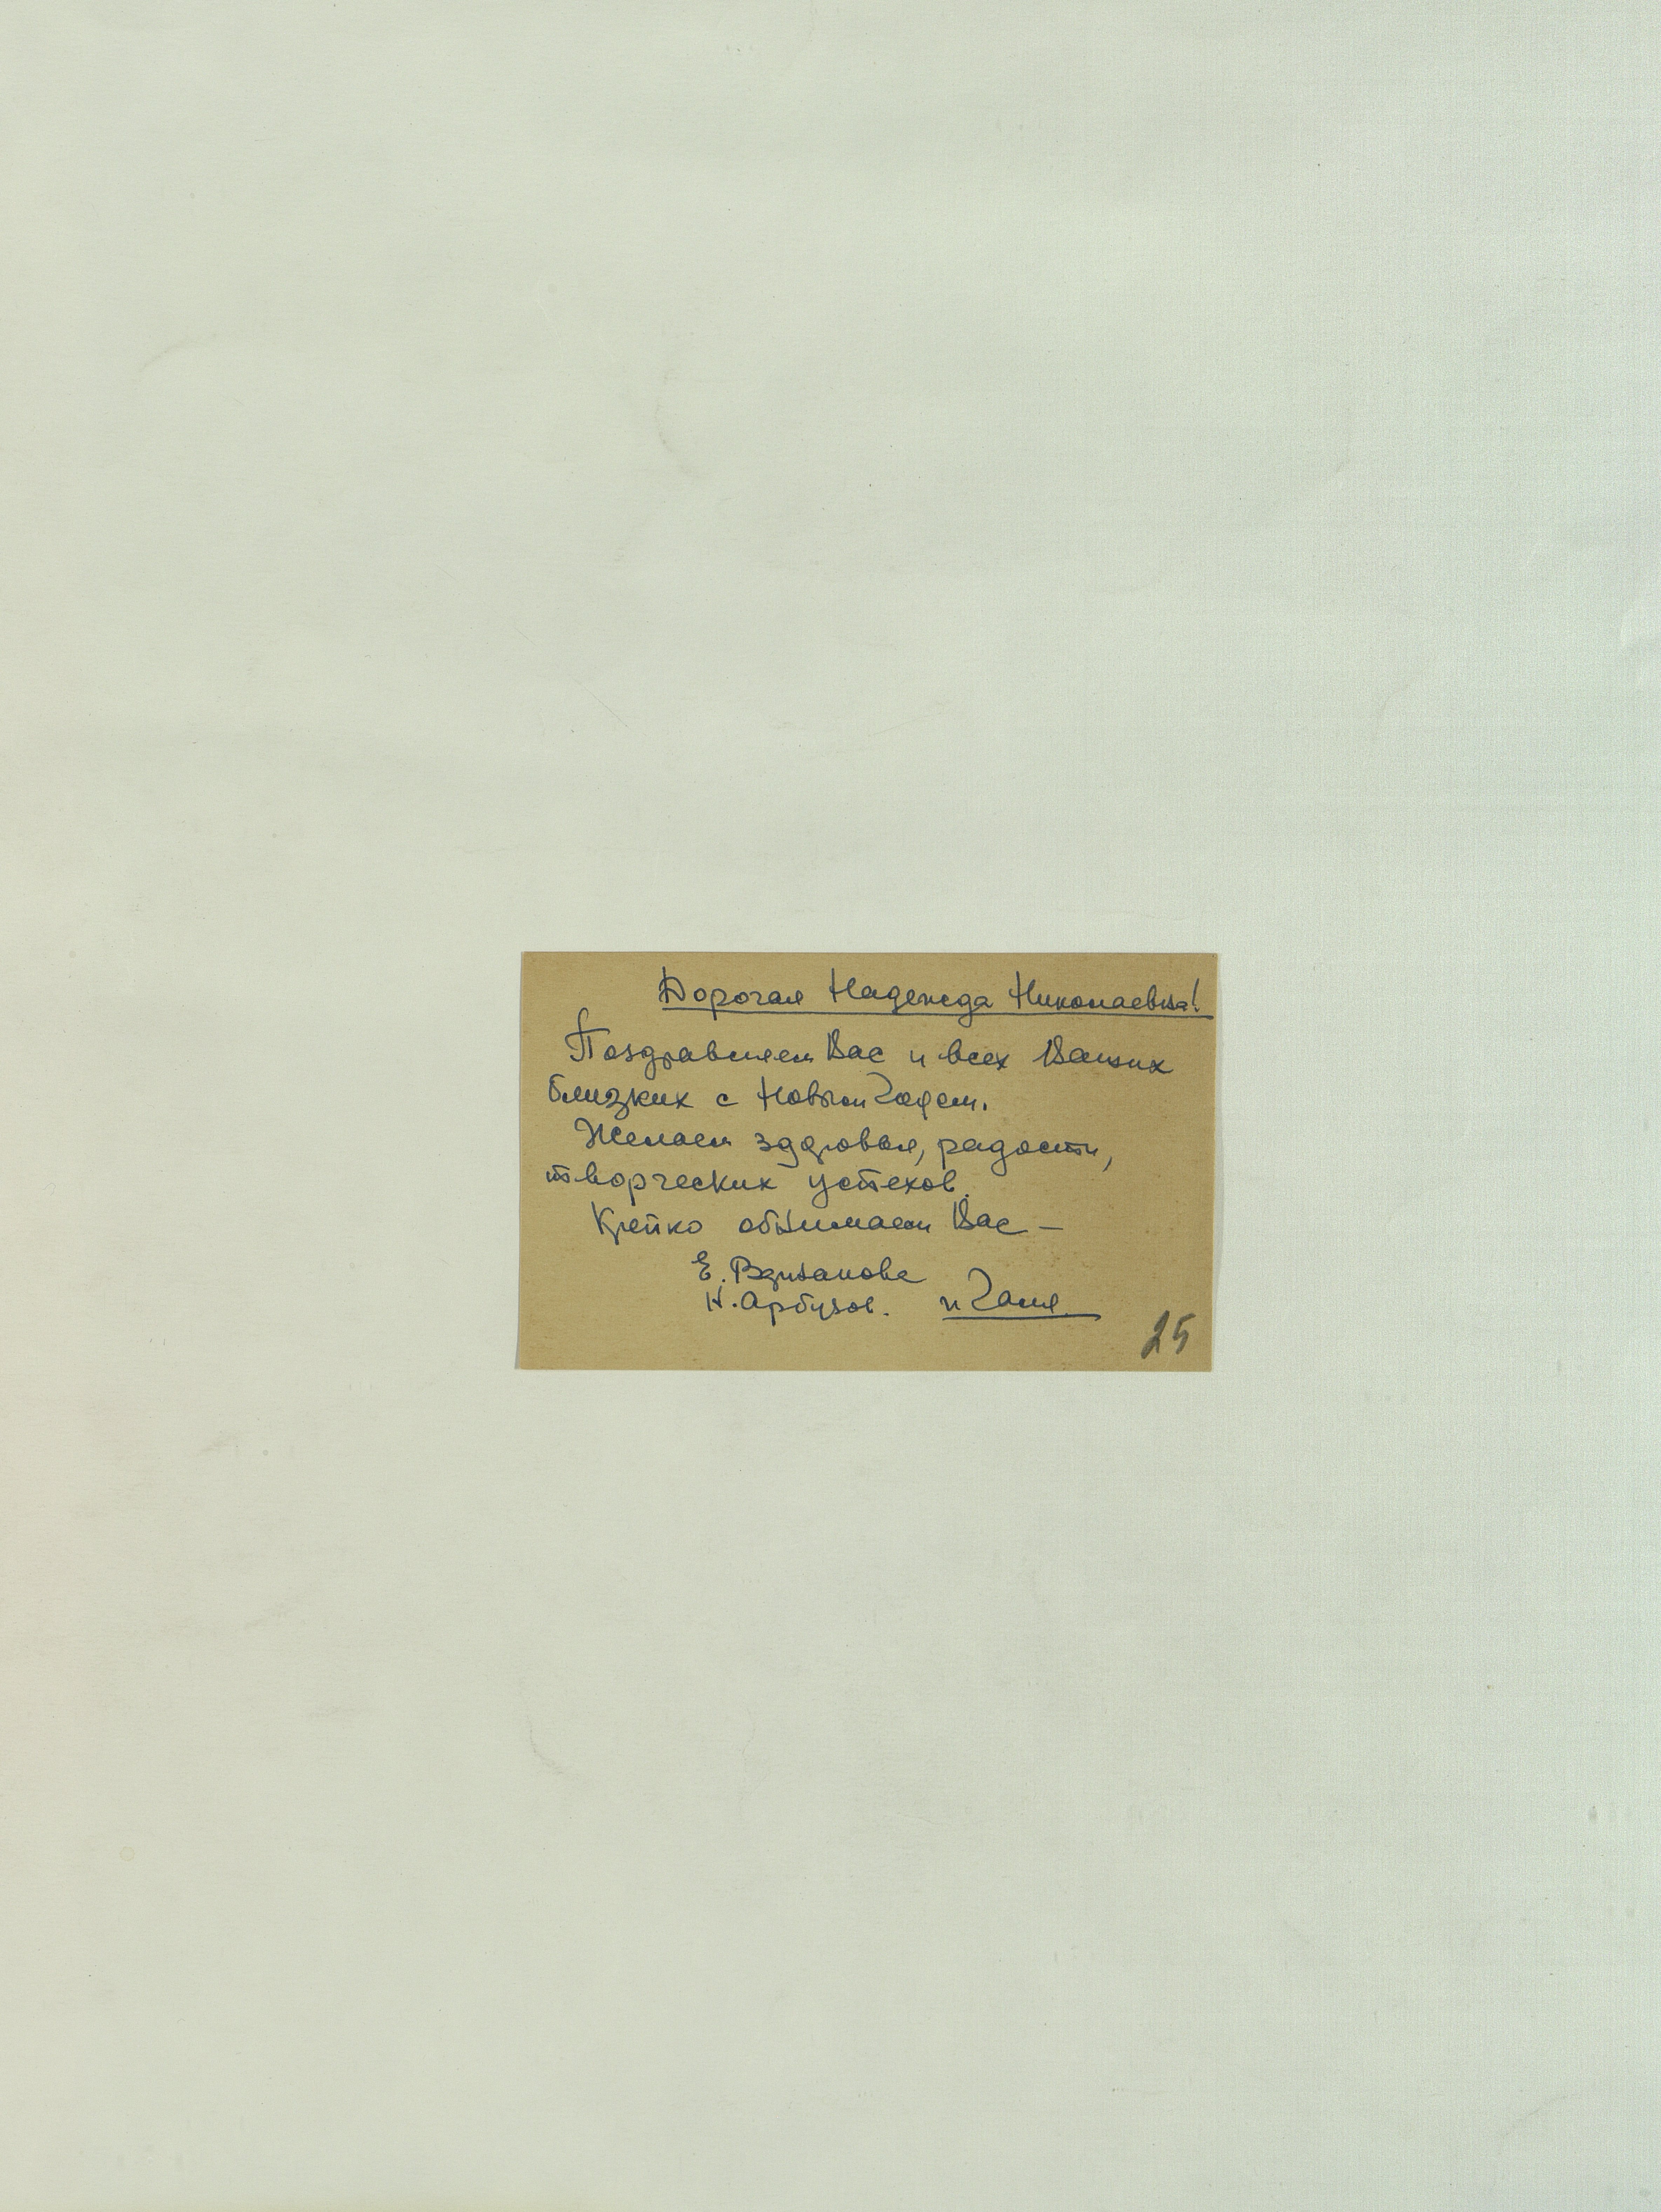 Дорогая Надежда Николаевна!
Поздравляем Вас и всех Ваших
близких с Новым Годом.
Желаем здоровья, радости,
творческих успехов.
Крепко обнимаем Вас —
Е.
Н. Арбузов. и Галя
25